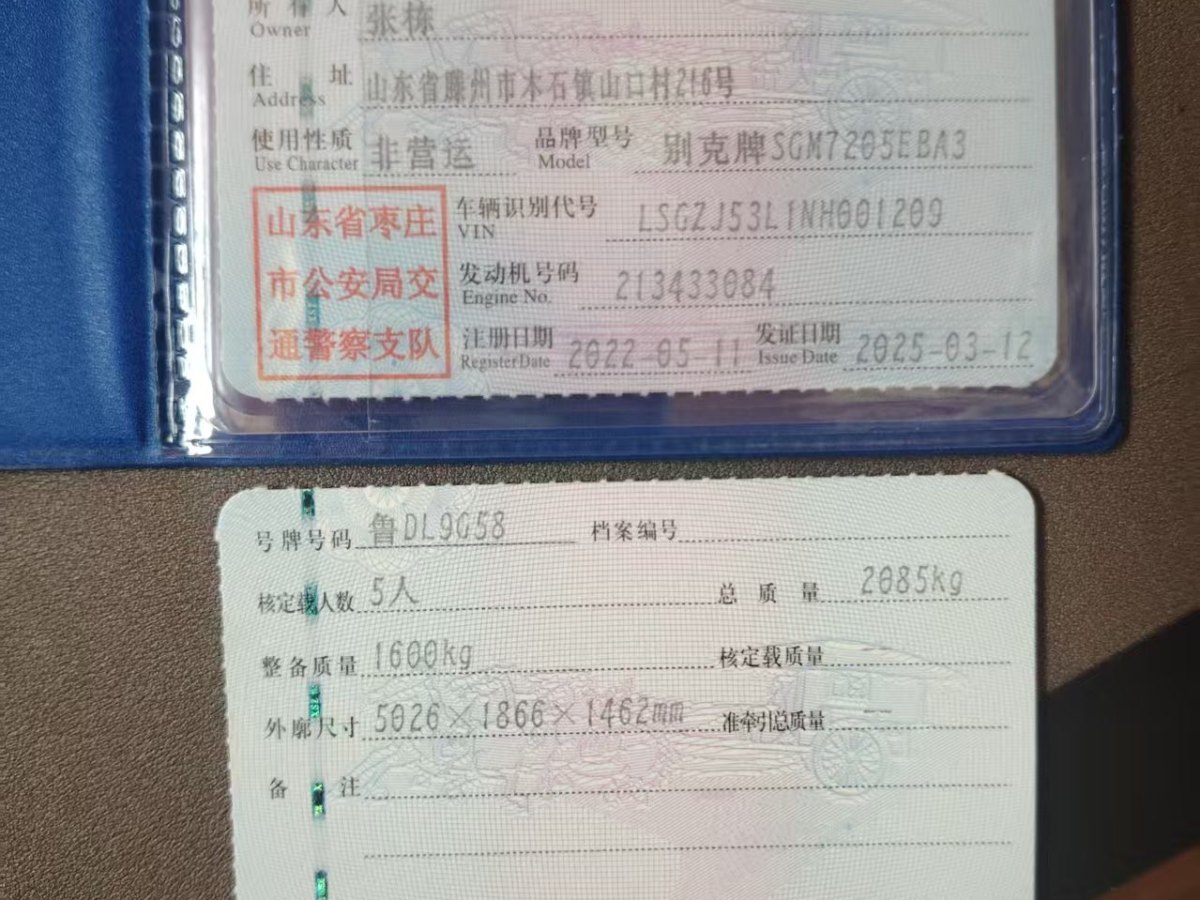 所有人 张栋
Owner
住址 山东省滕州市木石镇山口村216号
Address
使用性质 非营运 品牌型号 别克牌SGM7205EBA3
Use Character Model
山东省枣庄
市公安局交
通警察支队
车辆识别代号 LSGZJ53L1NH001209
VIN
发动机号码 213433084
Engine No.
注册日期 2022-05-11 发证日期 2025-03-12
Register Date Issue Date
号牌号码 鲁DL9G58 档案编号
核定载人数 5人 总质量 2085kg
整备质量 1600kg 核定载质量
外廓尺寸 5026×1866×1462mm 准牵引总质量 --
备注